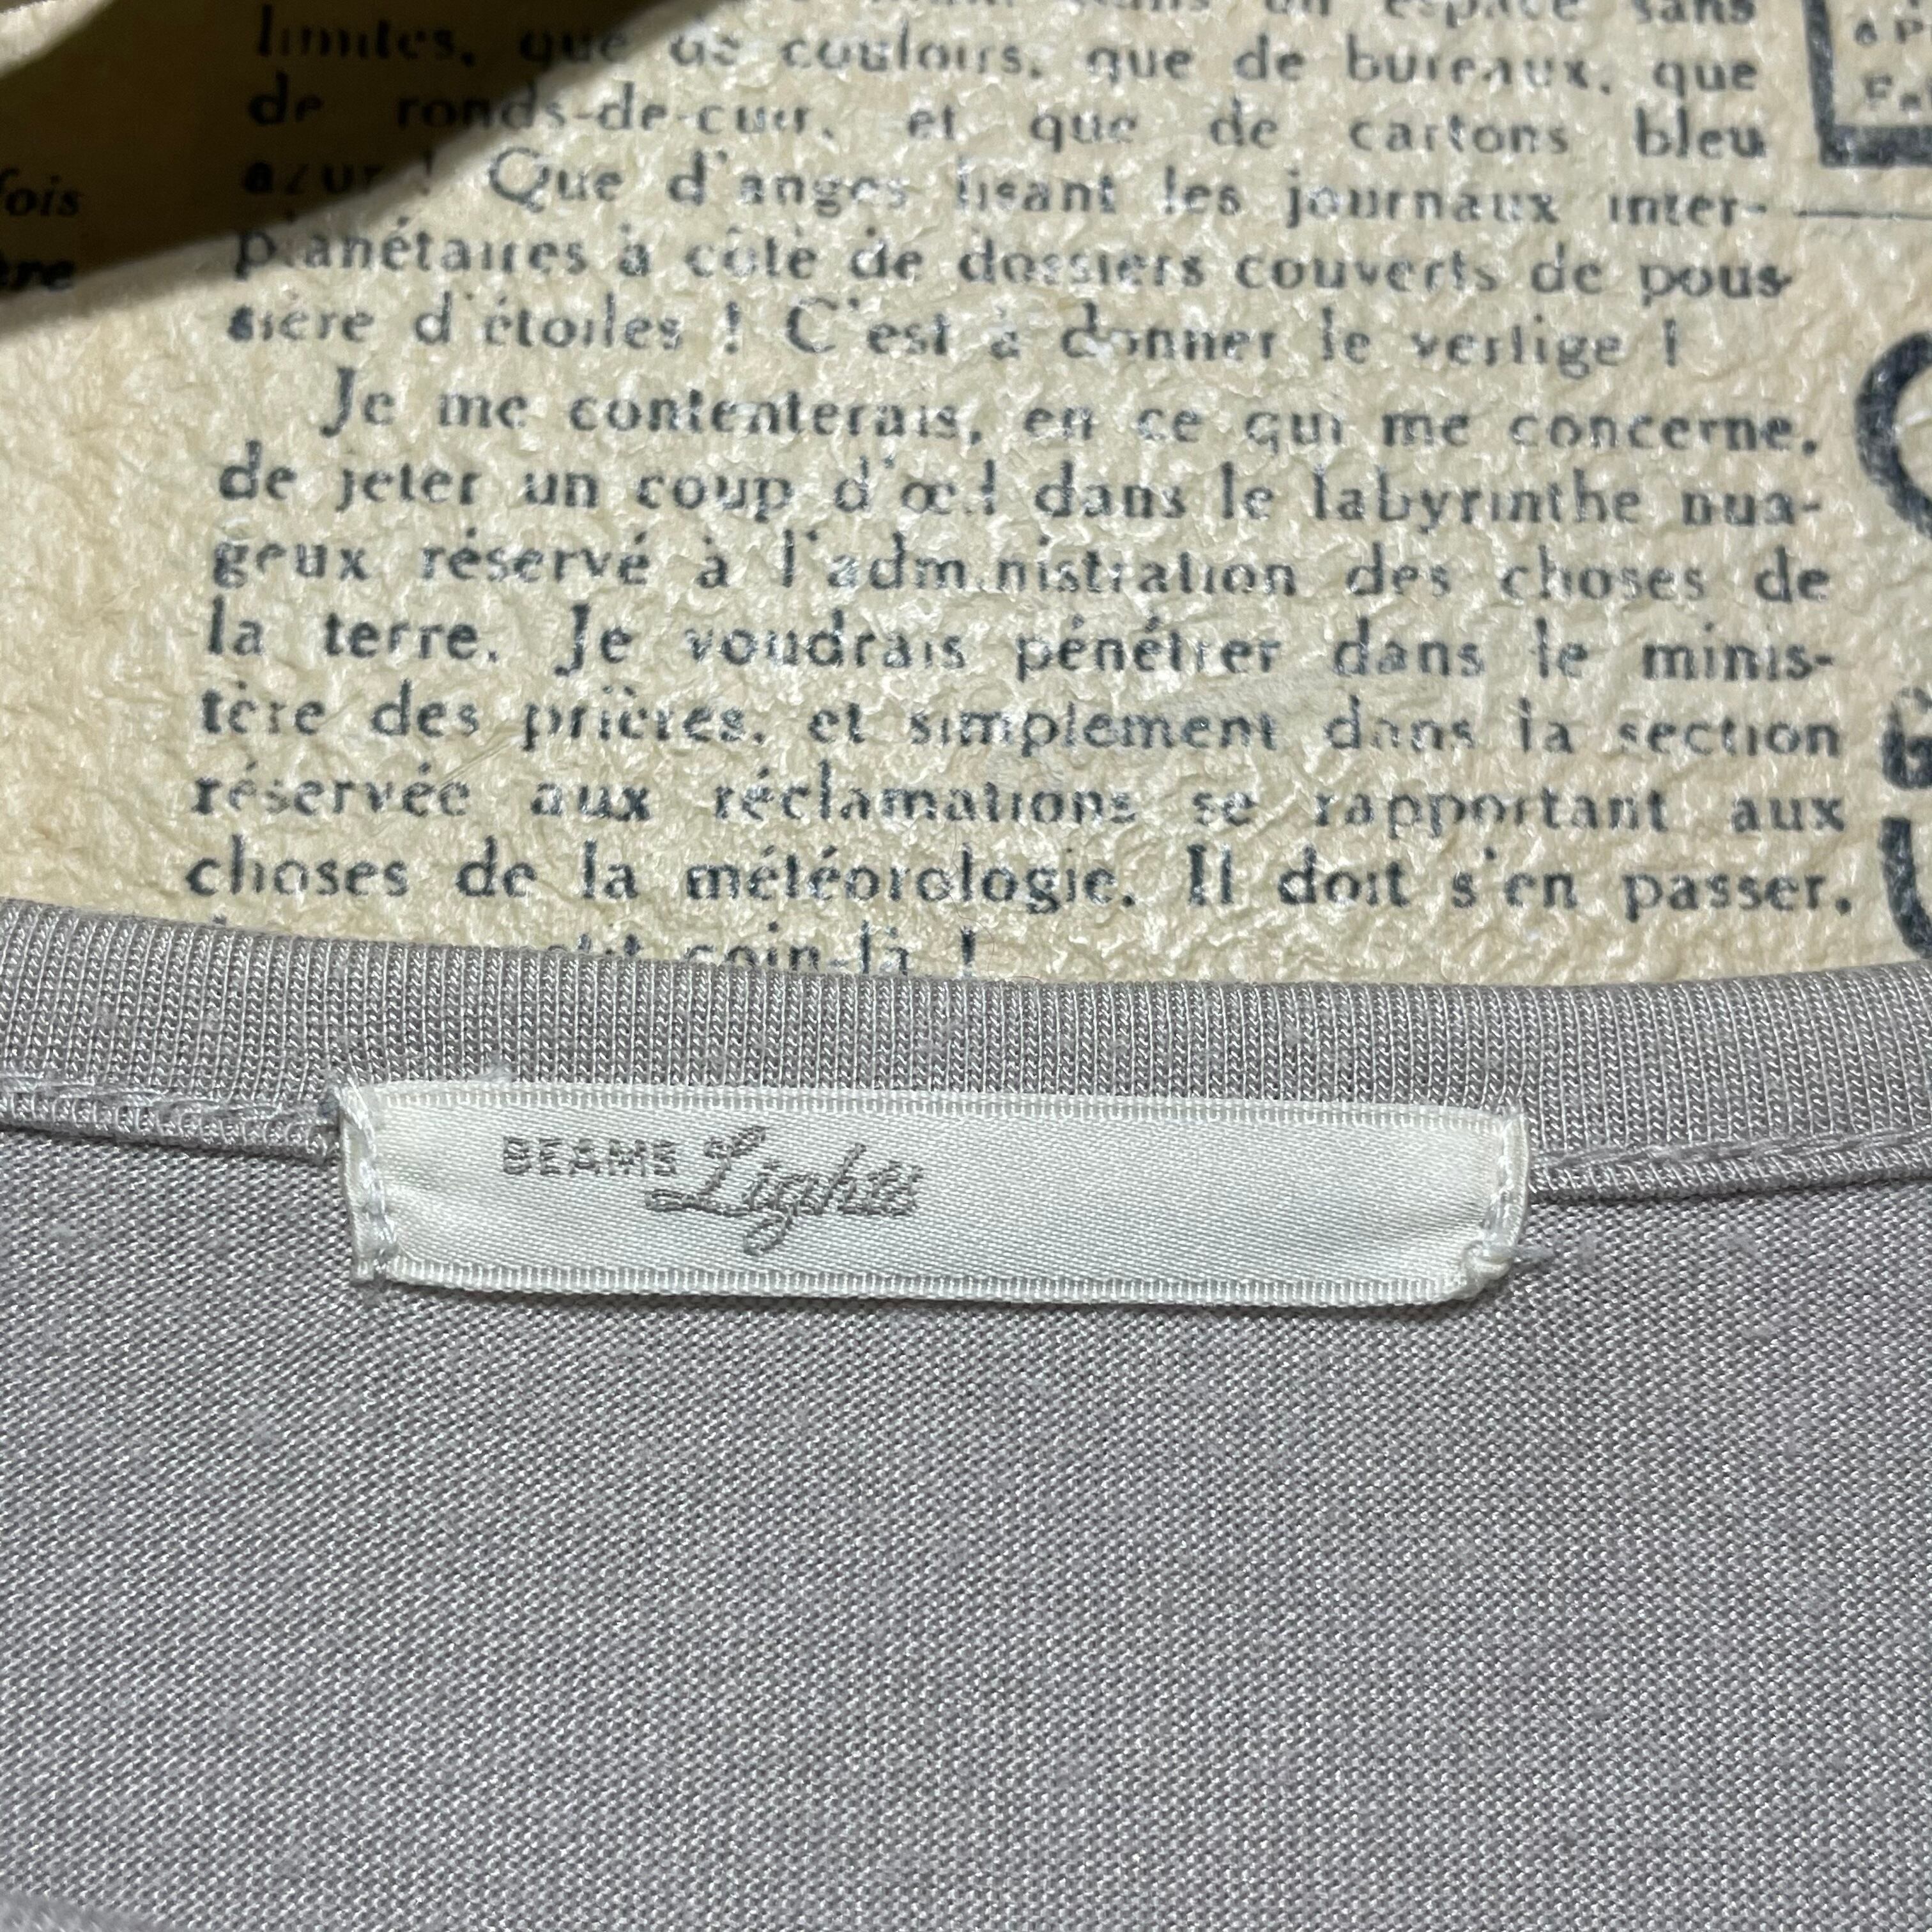 un espace sans
limites, que de couloirs, que de bureaux, que
de ronds-de-cuir, et que de cartons bleu
azur ! Que d'anges lisant les journaux inter-
planétaires à côté de dossiers couverts de pous-
sière d'étoiles ! C'est à donner le vertige !
Je me contenterais, en ce qui me concerne,
de jeter un coup d'œil dans le labyrinthe nua-
geux réservé à l'administration des choses de
la terre. Je voudrais pénétrer dans le minis-
tère des prières, et simplement dans la section
réservée aux réclamations se rapportant aux
choses de la météorologie. Il doit s'en passer,
coin-là !
fois
BEAMS Lights